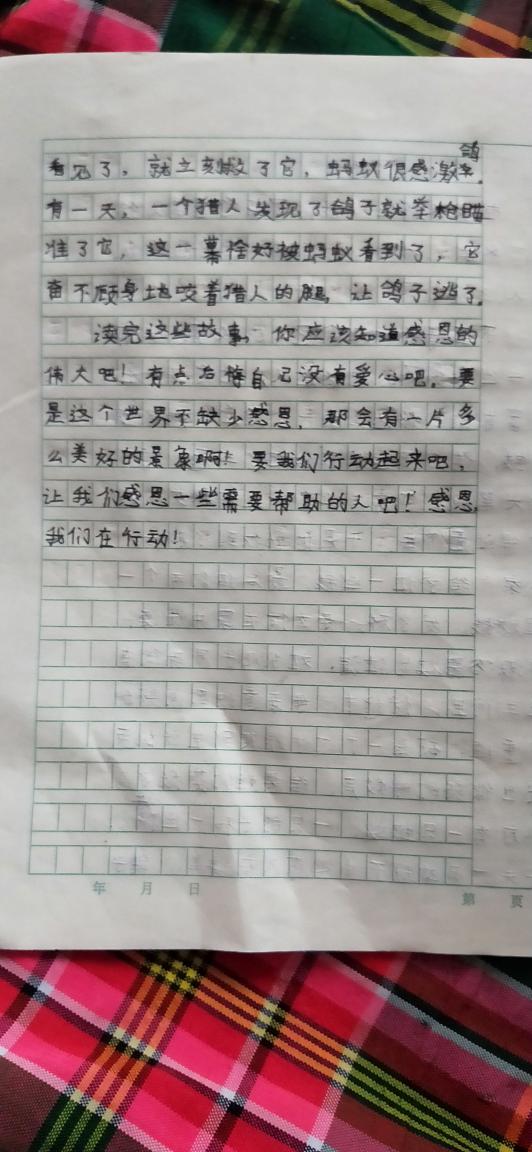 看见了，就立刻救了它，蚂蚁很感激鸽子。
有一天，一个猎人发现了鸽子就举枪瞄
准了它，这一幕恰好被蚂蚁看到了，它
奋不顾身地咬着猎人的腿，让鸽子逃了。
读完这些故事，你应该知道感恩的
伟大吧！有点后悔自己没有爱心吧，要
是这个世界不缺少感恩，那会有一片多
么美好的景象啊！要我们行动起来吧，
让我们感恩一些需要帮助的人吧！感恩，
我们在行动！
年 月 日
第 页